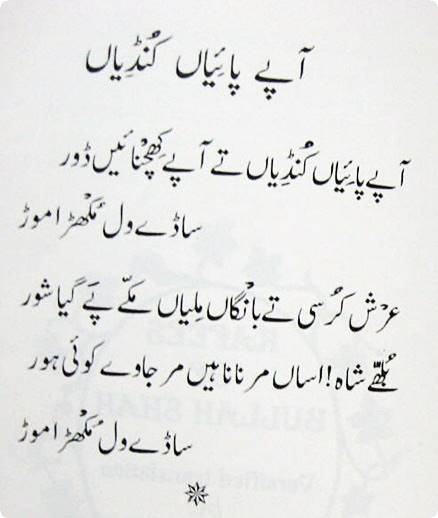 آپے پائیاں کُنڈیاں
آپے پائیاں کُنڈیاں تے آپے کِھچنائیں ڈور
ساڈے ول مُکھڑا موڑ
عرش کرسی تے بانگاں مِلیاں مکّے پَے گیا شور
بُلھّے شاہ! اساں مرنا ناہیں مر جاوے کوئی ہور
ساڈے ول مُکھڑا موڑ
BULLAH SHAH